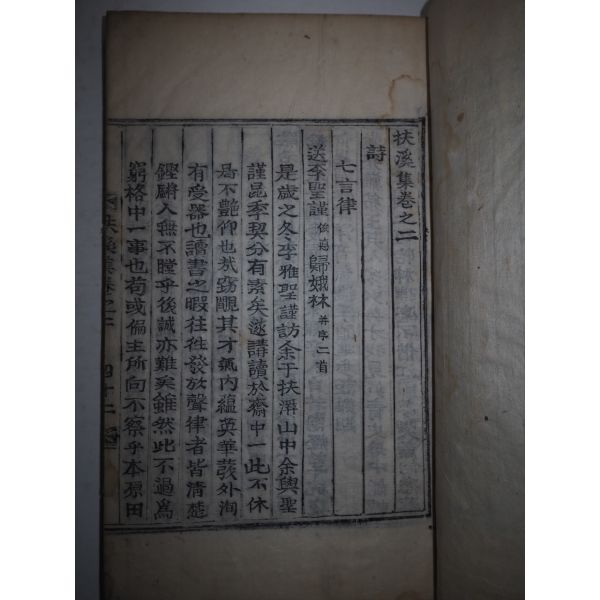 扶溪集卷之二
詩
七言律
送李聖謹歸娥林 并序二首
是歲之冬李雅聖謹訪余于扶溪山中余與聖
謹昆季契分有素矣遂講讀於齋中一此不休
焉不艶仰也哉竊覸其才氣內蘊英華發外洵
有受器也讀書之暇往往發於聲律者皆清楚
鏗鏘人無不瞠乎後誠亦難矣雖然此不過爲
窮格中一事也苟或偏主所向不察乎本源田
扶溪集卷之二 四十二